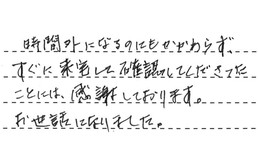 時間外になるのにもかかわらず、
すぐに来宅して確認してくださった
ことには、感謝しております。
お世話になりました。